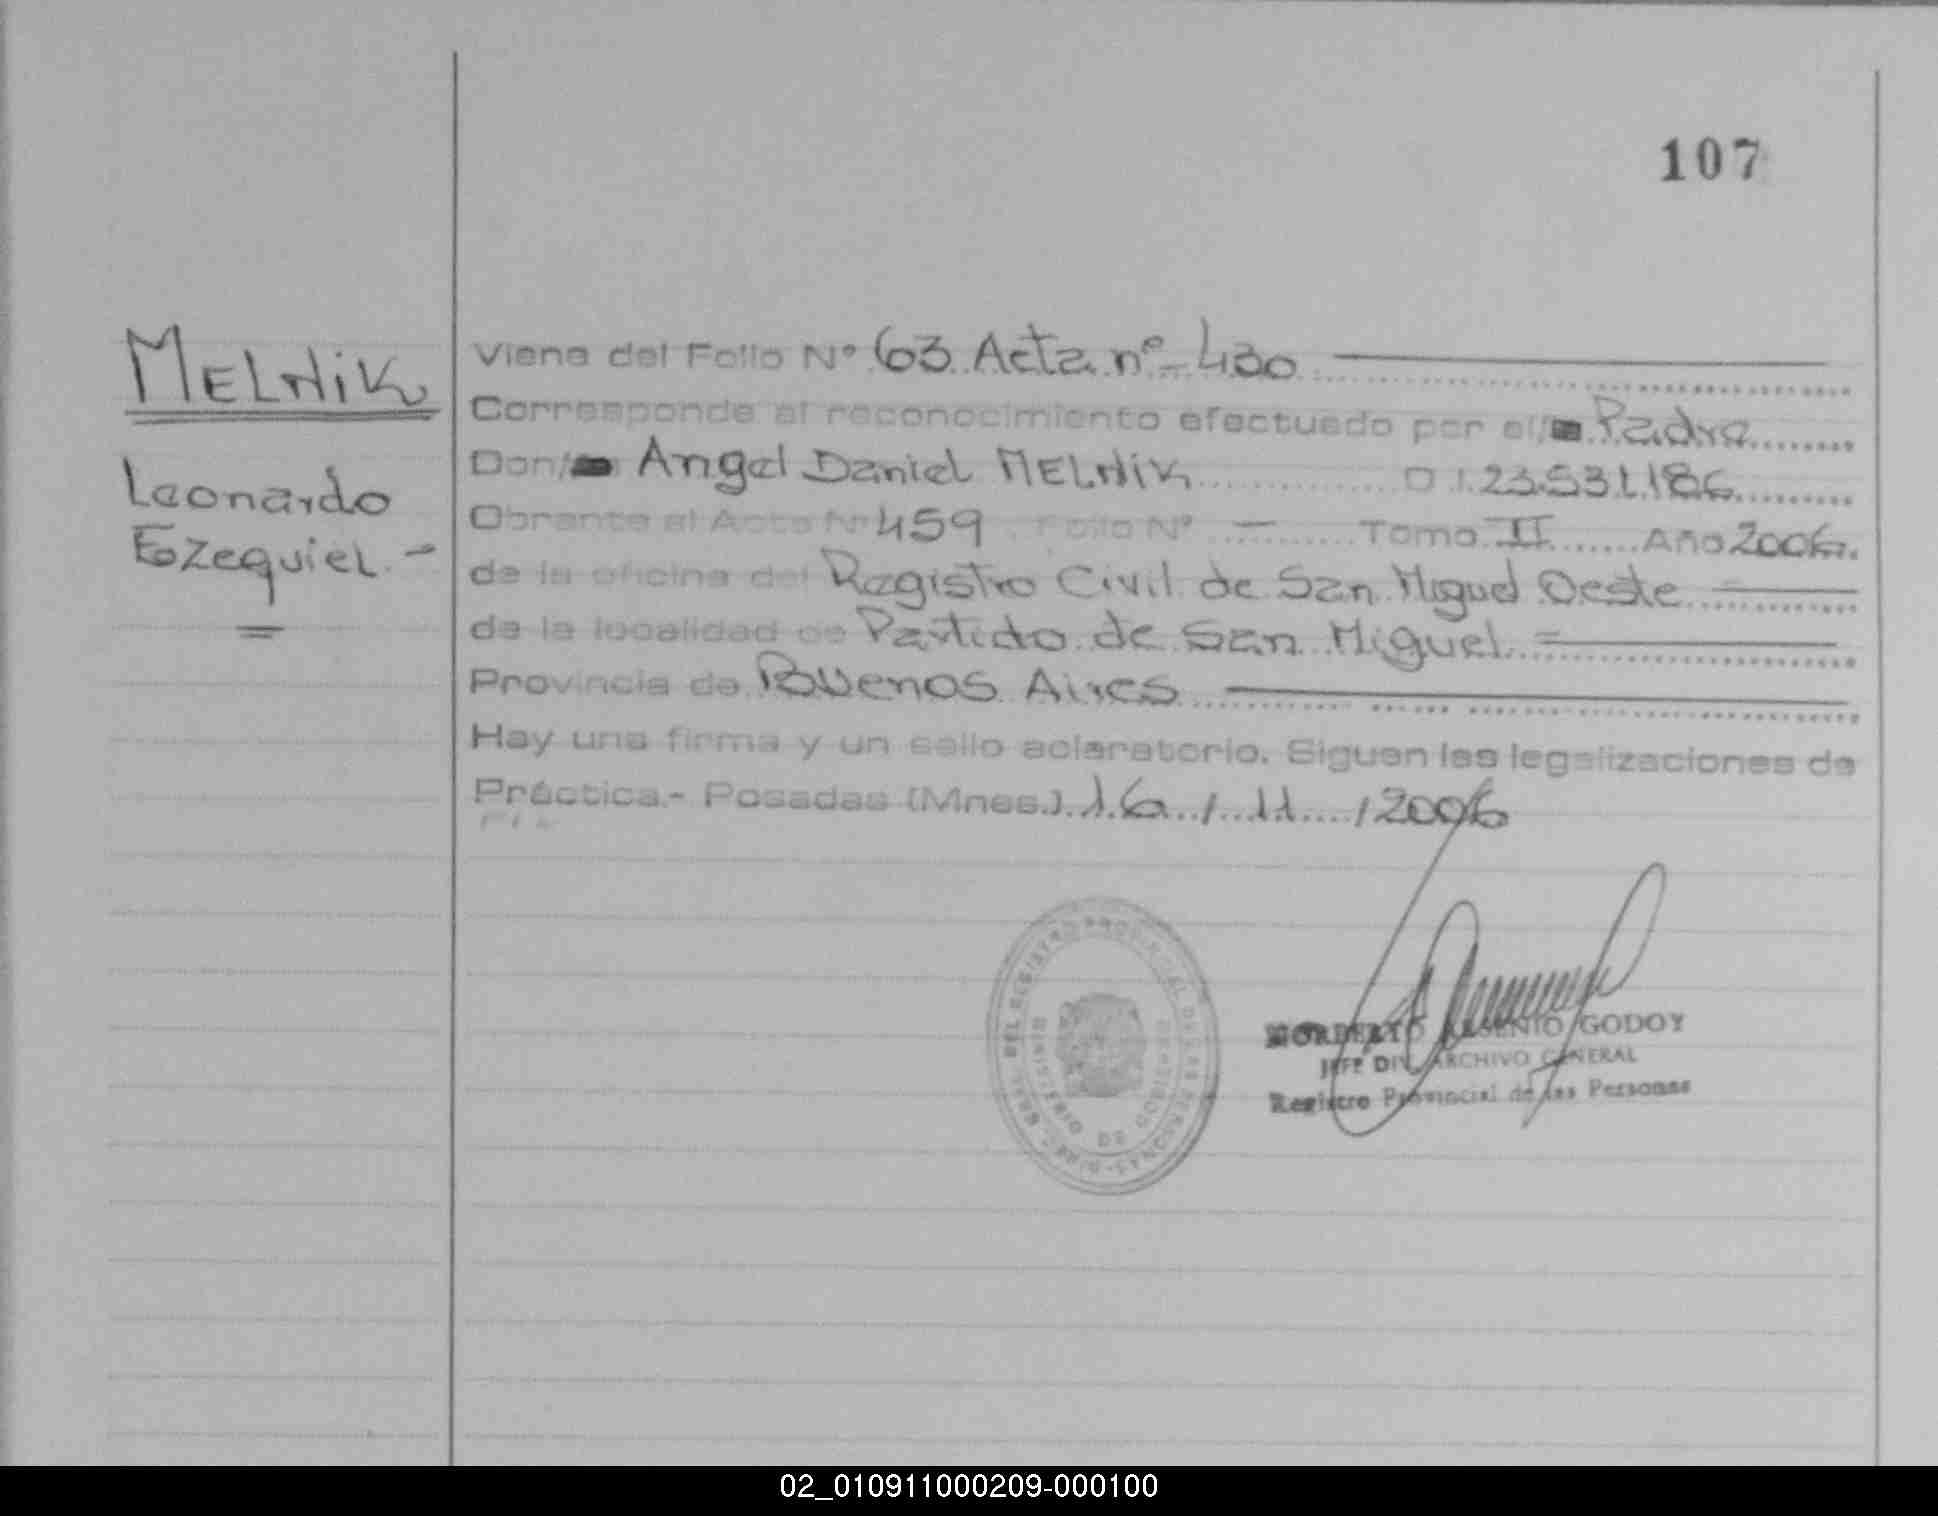 107
MELNIK
Leonardo
Ezequiel.-
=
Viene del Folio Nº 63 Acta nº- 430
Corresponde al reconocimiento efectuado por el/ Padre
Don/ Angel Daniel MELNIK D I 23.531.186
Obrante al Acta Nº 459 Folio Nº — Tomo II Año 2006.
de la oficina del Registro Civil de San Miguel Oeste
de la localidad de Partido de San Miguel =
Provincia de Buenos Aires
Hay una firma y un sello aclaratorio. Siguen las legalizaciones de
Práctica.- Posadas (Mnes.) 16 / 11 / 2006
DEL REGISTRO PROVINCIAL DE LAS PERSONAS
MINISTERIO DE GOBIERNO
NORBERTO ARSENIO GODOY
JEFE DIV. ARCHIVO GENERAL
Registro Provincial de las Personas
02_010911000209-000100